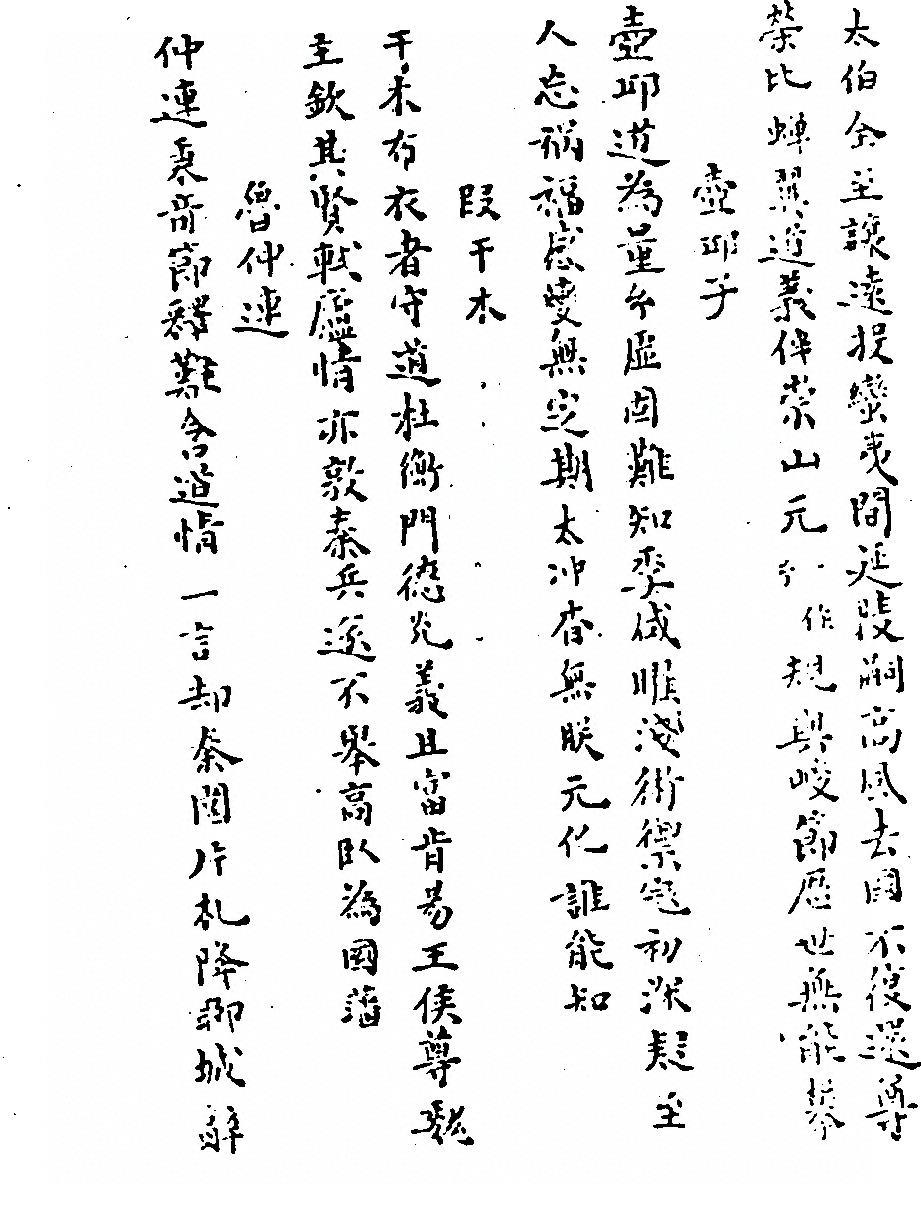 太伯全至讓遠投蠻夷間延陵嗣高風去國不復還尊
榮比蟬翼道義侔崇山元規與峻節歷世無能攀
壺邱子
壺邱道為量玄虛固難知季咸唯淺術禦寇初深疑至
人忘禍福感變無定期太沖杳無眹元化誰能知
段干木
干木布衣者守道杜衡門德光義且富肯易王侯尊魏
主欽其賢軾廬情亦敦秦兵遂不舉高臥為國藩
魯仲連
仲連秉奇節釋難含道情一言却秦圍片札降聊城辭